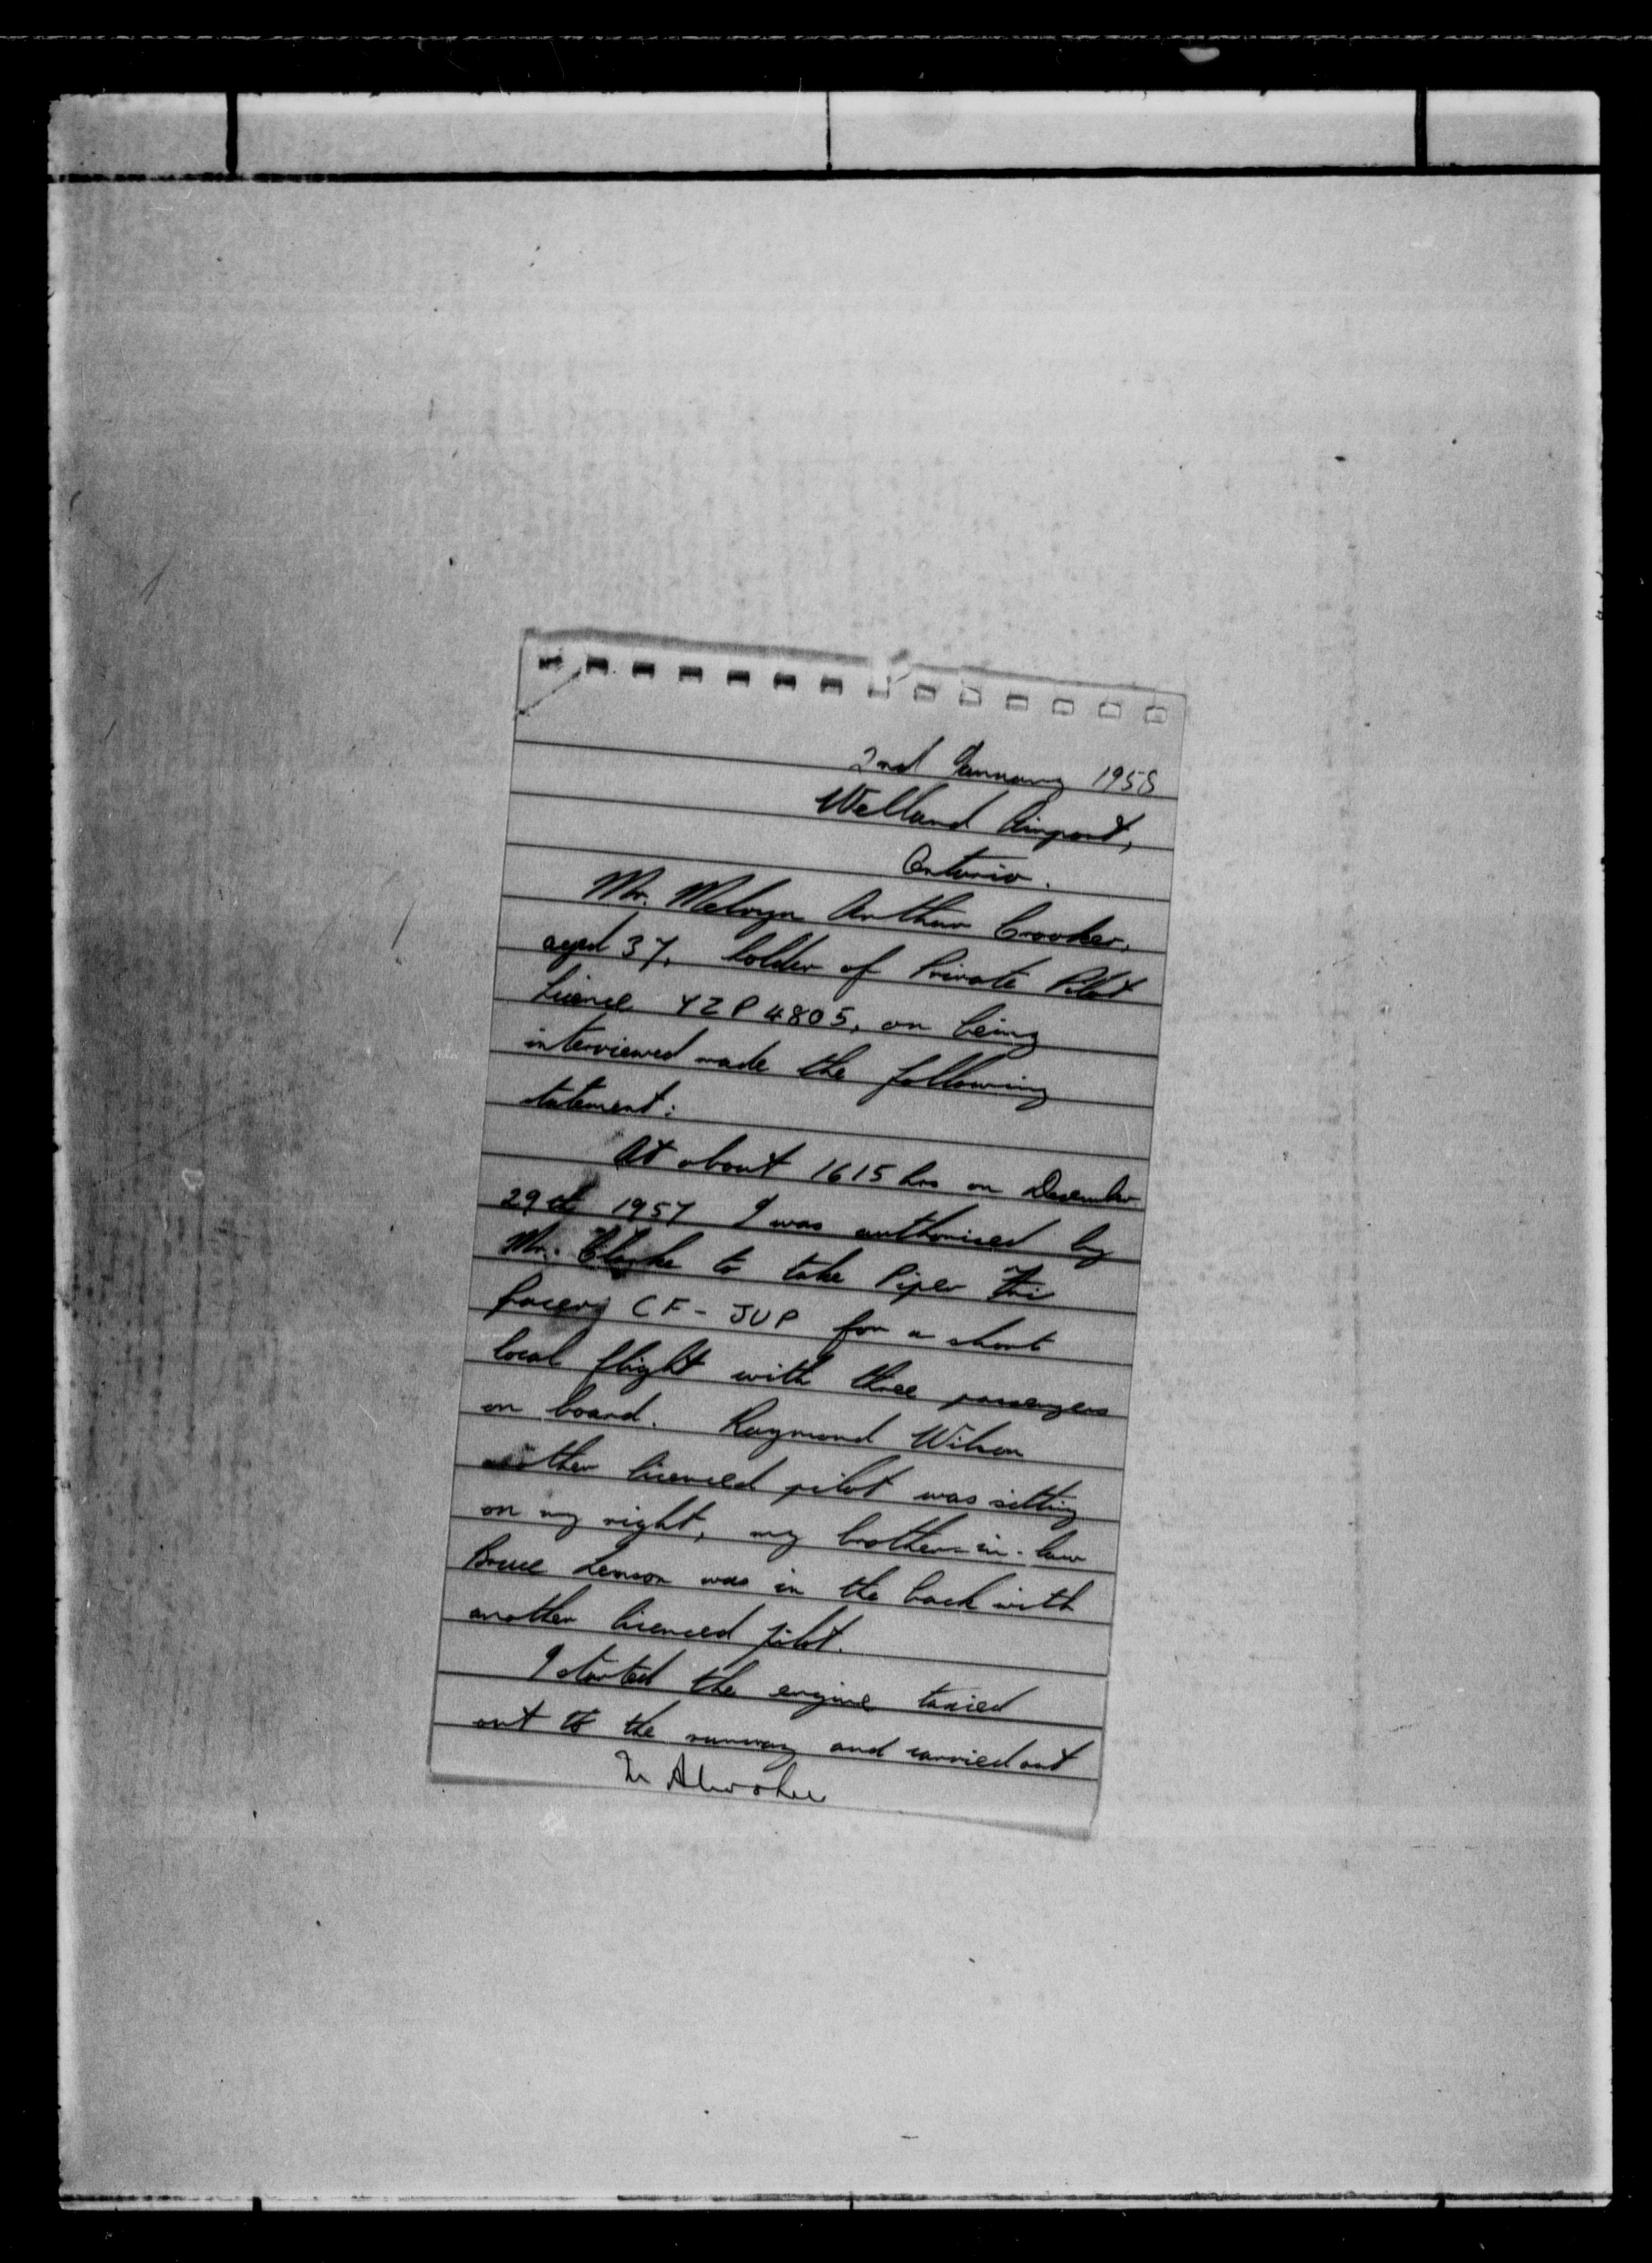 2nd January 1958
Welland Airport,
Ontario.
Mr. Melvyn Arthur Crooker,
aged 37, holder of Private Pilot
Licence YZP 4805, on being
interviewed made the following
statement:
At about 1615 hrs on December
29th 1957 I was authorised by
Mr. Clarke to take Piper Tri
Pacer CF-JUP for a short
local flight with three passengers
on board. Raymond Wilson
another licenced pilot was sitting
on my right, my brother-in-law
Bruce was in the back with
another licenced pilot.
I started the engine taxied
out to the runway and carried out